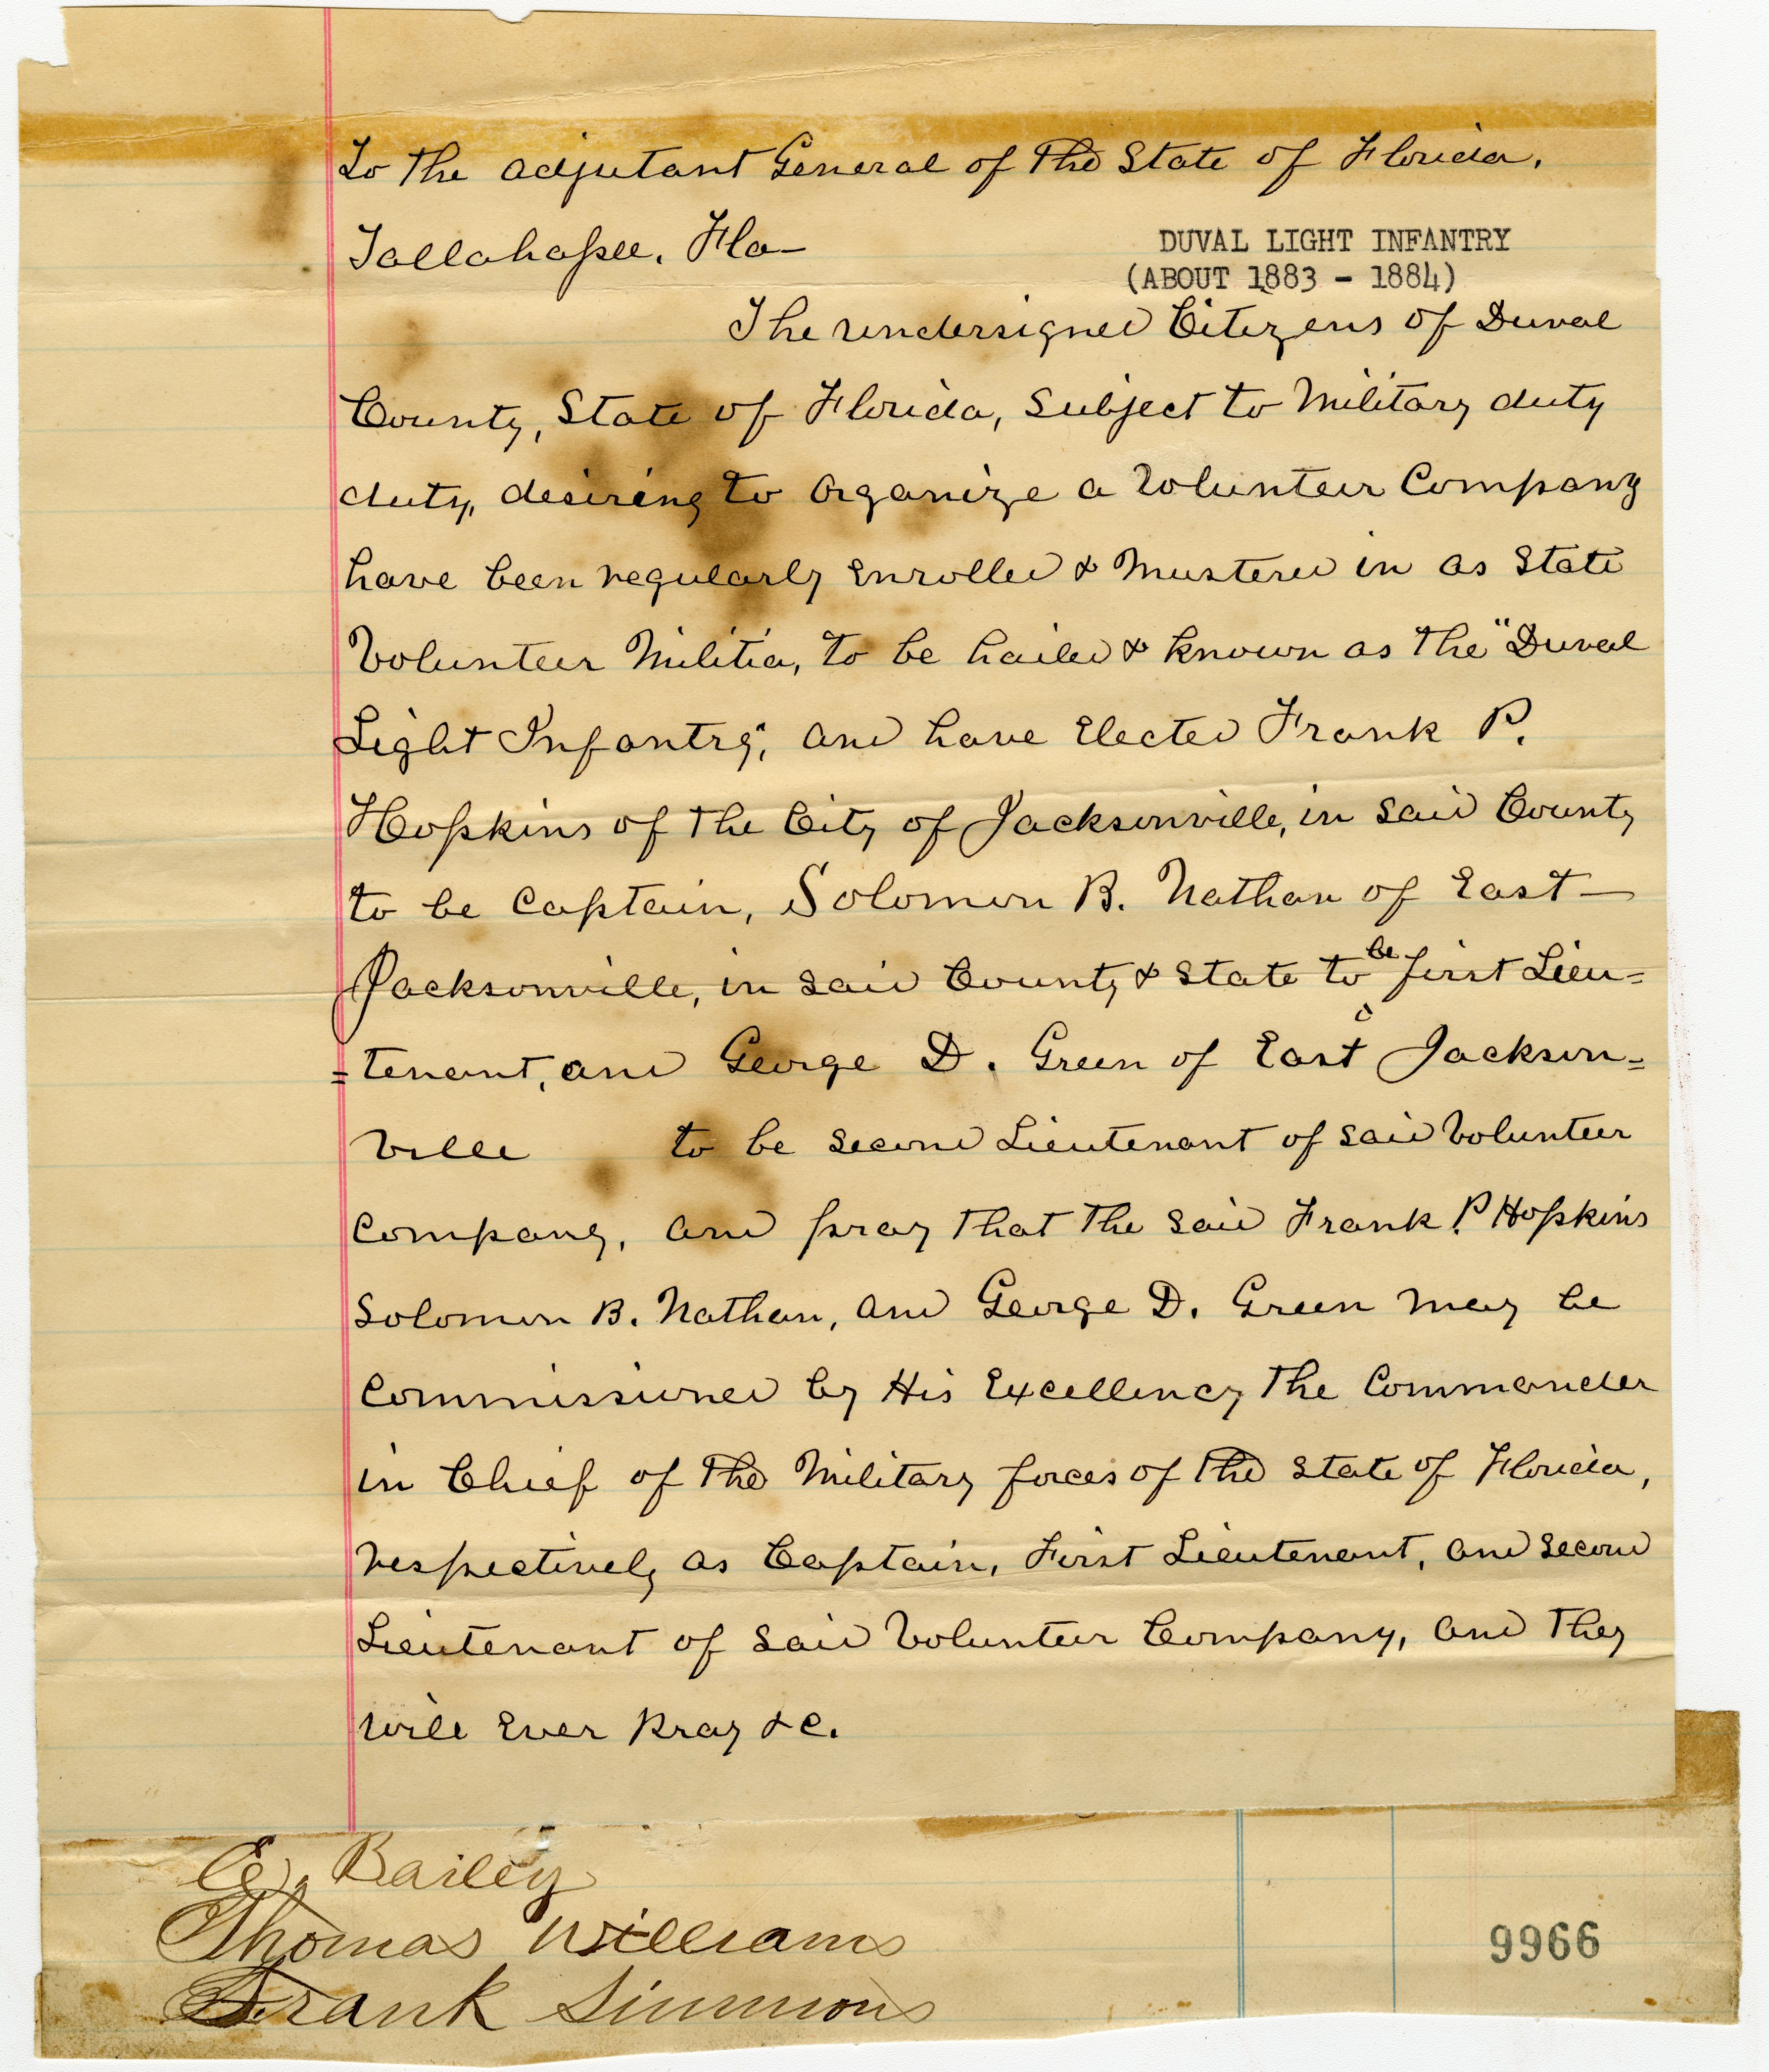 To the Adjutant General of the State of Florida.
Tallahassee. Fla—
DUVAL LIGHT INFANTRY
(ABOUT 1883 - 1884)
The undersigned Citizens of Duval
County, State of Florida, Subject to Military duty
duty, desiring to Organize a Volunteer Company
have been regularly Enrolled & Mustered in as State
Volunteer Militia, to be hailed & known as the "Duval
Light Infantry", and have Elected Frank P.
Hopkins of the City of Jacksonville, in said County
to be Captain, Solomon B. Nathan of East—
Jacksonville, in said County & State to be first Lieu=
=tenant, and George D. Green of East Jackson=
ville to be Second Lieutenant of said Volunteer
Company, and pray that the said Frank P. Hopkins
Solomon B. Nathan, and George D. Green may be
Commissioned by His Excellency the Commander
in Chief of the Military forces of the State of Florida,
respectively as Captain, First Lieutenant, and Second
Lieutenant of said Volunteer Company, and they
will Ever Pray &c.
Bailey
Thomas Williams
Frank Simmons
9966